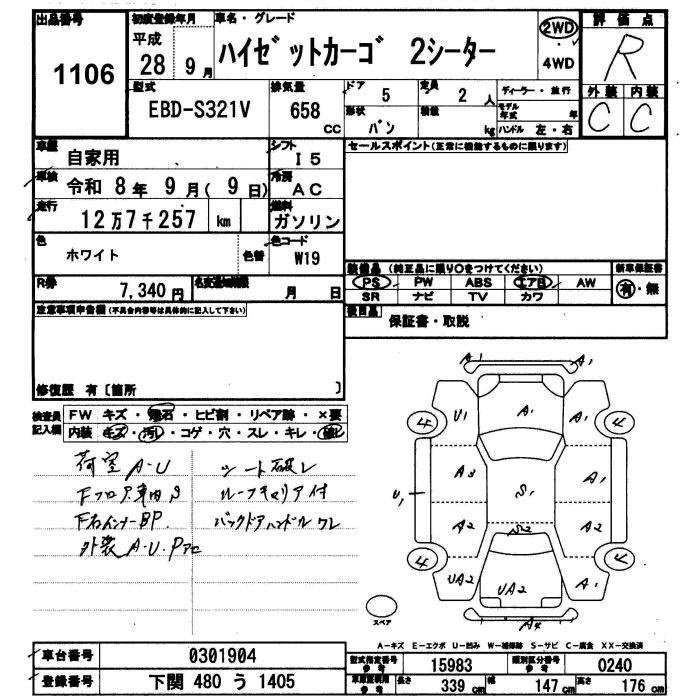 出品番号
1106
初度登録年月
平成
28 9月
車名・グレード
ハイゼットカーゴ 2シーター
2WD
4WD
評価点
R
外装 内装
C C
型式
EBD-S321V
排気量
658
CC
ドア
5
定員
2 人
形状
バン
積載
kg
ディーラー・並行
モデル年式 年
ハンドル 左・右
車歴
自家用
シフト
I5
車検
令和 8年 9月( 9日)
冷房
AC
走行
12万7千257 km
燃料
ガソリン
色
ホワイト
色替
色コード
W19
R券
7,340円
名変期限
月 日
セールスポイント(正常に機能するものに限ります)
装備品 (純正品に限り○をつけてください)
PS PW ABS エアB AW
SR ナビ TV カワ
新車保証書
有・無
後日品
保証書・取説
注意事項申告欄(不具合内容等は具体的に記入して下さい)
修復歴 有〔箇所 〕
検査員記入欄
FW キズ・飛石・ヒビ割・リペア跡・×要
内装 キズ・汚レ・コゲ・穴・スレ・キレ・破レ
荷室 A・U
Fフロア車内S
F右インナーBP.
外装 A・U・P
シート破レ
ルーフキャリア付
バックドアハンドルワレ
A1
A1
4 U1 A1 A1 4
A3 A1
U1 S1
A2 S2 A2
4 UA2 UA2 A1 4
A4
スペア
A-キズ E-エクボ U-凹み W-補修跡 S-サビ C-腐食 XX-交換済
車台番号 0301904
登録番号 下関 480 う 1405
型式指定番号 参考 15983
類別区分番号 参考 0240
長さ 339cm 幅 147cm 高さ 176cm